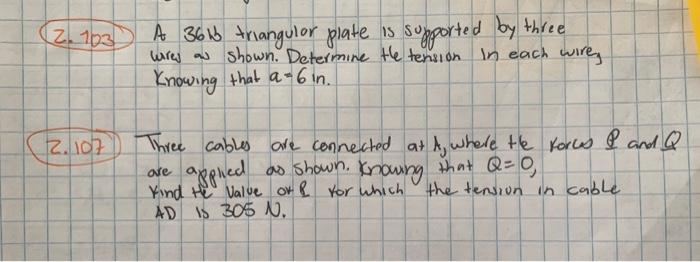 2.103 A 36 lb triangular plate is supported by three
wires as shown. Determine the tension in each wire,
Knowing that a=6 in.
2.107 Three cables are connected at A, where the forces P and Q
are applied as shown. Knowing that Q=0,
Find the value of P for which the tension in cable
AD is 305 N.